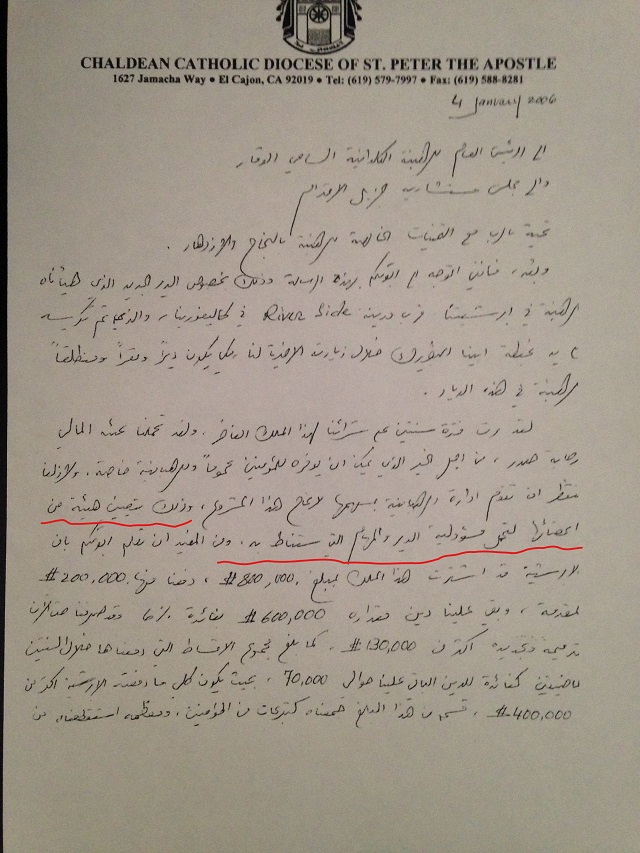 CHALDEAN CATHOLIC DIOCESE OF ST. PETER THE APOSTLE
1627 Jamacha Way ● El Cajon, CA 92019 ● Tel: (619) 579-7997 ● Fax: (619) 588-8281
4 January 2006
الى الرئيس العام للرهبنة الكلدانية السامي الوقار
والى مجلس مستشاريه جزيل الاحترام
تحية بالرب مع التمنيات الخالصة للرهبنة بالنجاح والازدهار .
وبعد، فانني اتوجه الى ابوتكم بهذه الرسالة وذلك بخصوص الدير الجديد الذي هيأناه
للرهبنة في ابرشيتنا قرب مدينة River Side في كاليفورنيا، والذي تم تكريسه
غبطة ابينا البطريرك خلال زيارته الاخيرة لنا، لكي يكون ديراً ومقراً ومنطلقاً
للرهبنة في هذه الديار .
لقد مرت فترة سنتين على شرائنا لهذا الملك الفاخر، ولقد تحملنا عبئه المالي
برحابة صدر، من اجل الخير الذي يمكن ان يوفره للمؤمنين عموماً وللرهبانية خاصة، ولازلنا
ننتظر ان تقوم ادارة الرهبانية بسهمها لانجاح هذا المشروع، وذلك بتعيين هيئة من
اعضائها لتحمل مسؤولية الدير والمهام التي ستناط به. ومن المفيد ان نعلم ابوتكم بان
الابرشية قد اشترت هذا الملك بمبلغ $800,000، دفعنا منها $200,000
كمقدمة، وبقي علينا دين مقداره $600,000 بفائدة 6٪ وقد صرفنا
ترميمه وتجديده اكثر من $130,000، كما بلغ مجموع الاقساط التي دفعناها خلال السنتين
الماضيتين كفائدة للدين الباقي علينا حوالي 70,000، بحيث يكون كل ما دفعته الابرشية اكثر من
$400,000، قسم من هذا المبلغ جمعناه كتبرعات من المؤمنين، ومعظمه استقطعناه من